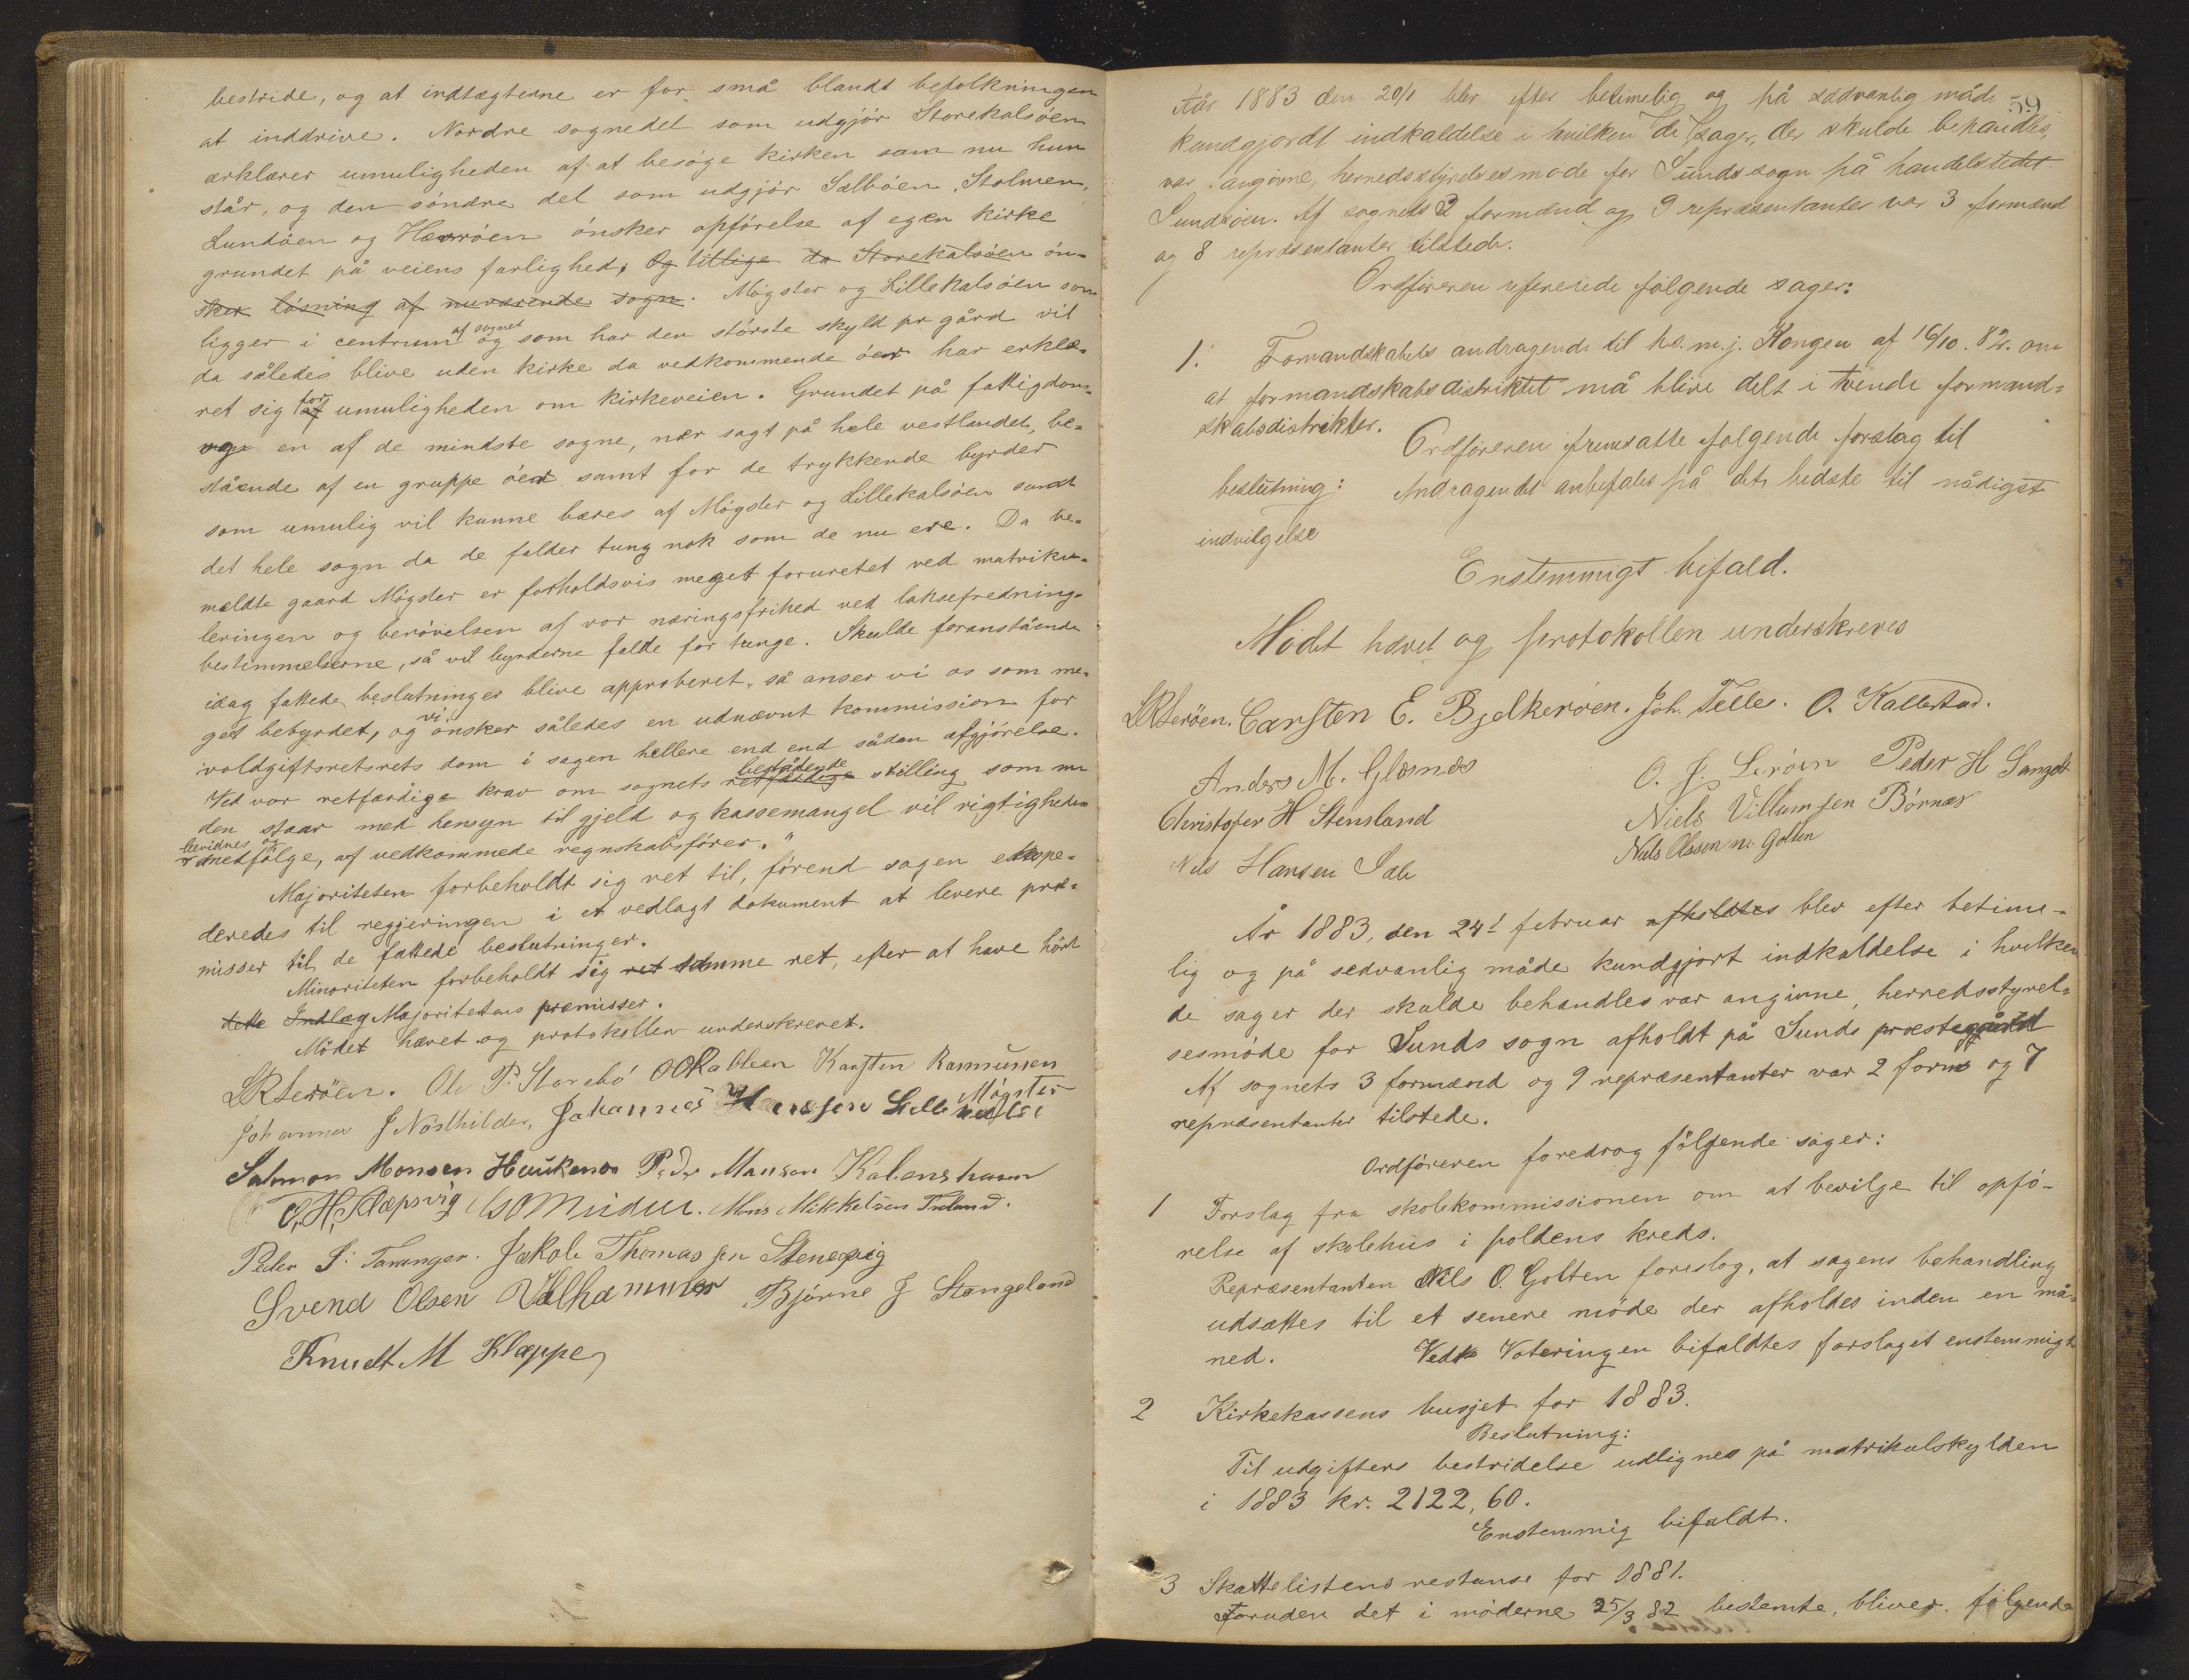 bestride, og at indtægterne er for små blandt befolkningen
at inddrive. Nordre sognedel som udgjör Storekalsöen
ærklærer umuligheden af at besöge kirken som nu hun
står, og den söndre del som udgjör Selböen, Stolmen,
Lundöen og Hevröen önsker opförelse af egen kirke
grundet på veiens farlighed; Og tillige da Storekalsöen ön-
sker lösning af nuværende sogn. Mögster og Lillekalsöen som
ligger i centrum af sognet og som har den störste skyld pr gård vil
da således blive uden kirke da vedkommende öer har erklæ-
ret sig for umuligheden om kirkeveien. Grundet på fattigdom
og en af de mindste sogne, nær sagt på hele vestlandet, be-
stående af en gruppe öer samt for de trykkende byrder
som umulig vil kunne bæres af Mögster og Lillekalsöen samt
det hele sogn da de falder tung nok som de nu ere. Da be-
meldte gaard Mögster er forholdsvis meget foruretet ved matriku-
leringen og berövelsen af vor næringsfrihed ved laksefrednings-
bestemmelserne, så vil byrderne falde for tunge. Skulde foranstående
idag fattede beslutninger blive approberet, så anser vi os som me-
get bebyrdet, og vi önsker således en udnævnt kommission for
voldgiftsretsrets dom i sagen hellere end end sådan afgjörelse.
Ved vor retfærdige krav om sognets retfærdige bestående stilling som nu
den staar med hensyn til gjeld og kassemangel vil rigtigheden
bevidnes og medfölge, af vedkommede regnskabsförer."
Majoriteten forbeholdt sig ret til, förend sagen ekspe-
deredes til regjeringen i et vedlagt dokument at levere præ-
misser til de fattede beslutninger.
Minoriteten forbeholdt sig ret samme ret, efter at have hört
dette Indlæg Majoritetens præmisser.
Mödet hævet og protokollen underskrevet.
LRSeröen. Ole P. Storebö Karsten Rasmussen
Mögster
Johannes J Nösthilder, Johannes Hansen Lille
Salmon Monsen Haukenes Peder Monsen Kalvenshavn
O. H. Slepsvig Mons Mikkelsen
Peder J. Taranger. Jakob Thomassen Stenevig
Svend Olsen Valhammer Björne J Stangeland
Knudt M Kleppe
59
Aar 1883 den 20/1 blev efter betimelig og på sædvanlig måde
kundgjordt indkaldelse i hvilken de sager, der skulde behandles,
var angivne, herredsstyrelsesmöde for Sunds sogn på handelstedet
Lundsöen. Af sognets 3 formænd og 9 repræsentanter var 3 formænd
og 8 repræsentanter tilstede.
Ordföreren refererede fölgende sager:
1. Formandskabets andragende til hs. m. j. Kongen af 16/10. 82. om
at formandskabsdistriktet må blive delt i tvende formand-
skabsdistrikter.
Ordföreren fremsatte fölgende forslag til
beslutning: Andragendet anbefales på det bedste til nådigst
indvilgelse
Enstemmigt bifald.
Mödet hævet og protokollen underskreves
LRLeröen. Carsten E. Bjelkeröen. Joh. Telle. O. Kallestad.
Anders M. Glesnes O. J. Leröen Peder H
Christofer H Stensland Niels Villumsen Börnes
Nils Hansen Nils Olssen n. Golten
År 1883, den 24de februar afholdtes blev efter betime-
lig og på sedvanlig måde kundgjort indkaldelse i hvilken
de sager der skulde behandles var angivne, herredsstyrel-
sesmöde for Sunds sogn afholdt på Sunds præstegård
Af sognets 3 formænd og 9 repræsentanter var 2 form og 7
repræsentanter tilstede.
Ordföreren foredrog fölgende sager:
1 Forslag fra skolekommissionen om at bevilge til opfö-
relse af skolehus i foldens kreds.
Repræsentanten Nils O. Golten foreslog, at sagens behandling
udsættes til et senere möde der afholdes inden en må-
ned. Ved Voteringen bifaldtes forslaget enstemmigt
2 Kirkekassens busjet for 1883.
Beslutning:
Til udgifters bestridelse udlignes på matrikulskylden
i 1883 kr. 2122,60.
Enstemmig bifaldt.
3 Skattelistens restanse for 1881.
Foruden det i möderne 25/3 82 bestemte, bliver fölgende